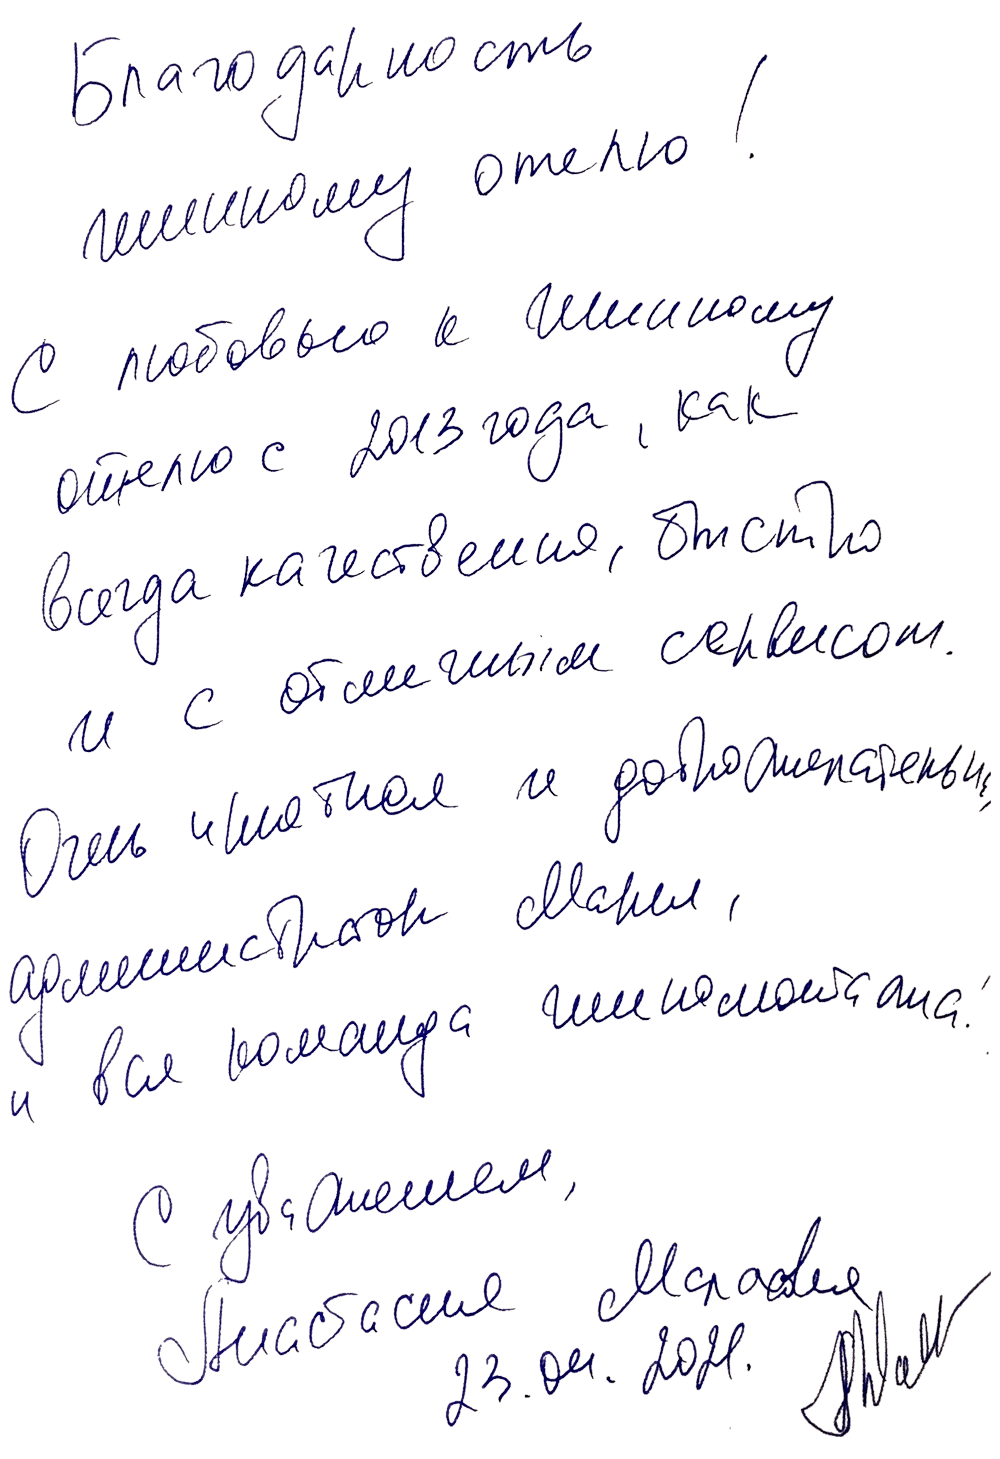 Благодарность
шинному отелю!
С любовью к Шинному
отелю с 2013 года, как
всегда качественно, быстро
и с отличным сервисом.
Очень приятная и доброжелательный
администратор Мария,
и вся команда шиномонтажа!
С уважением,
Анастасия
23.04.2021.